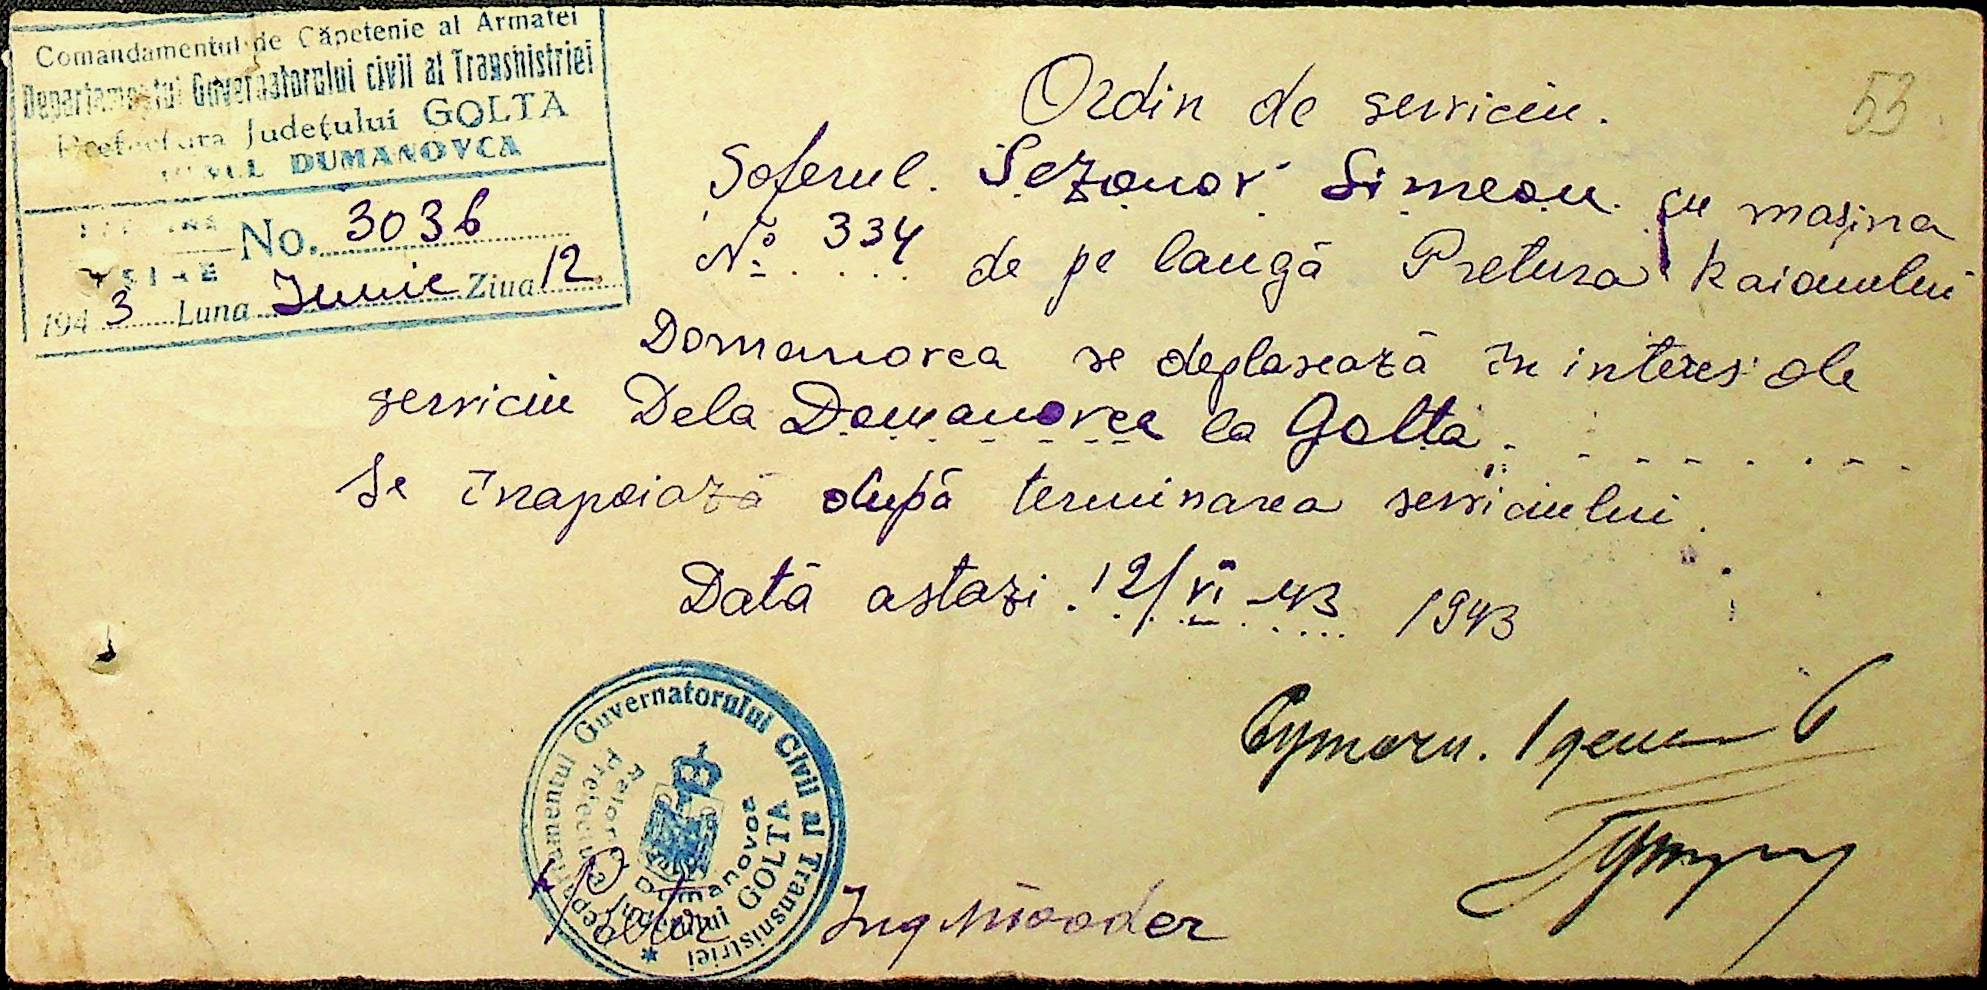 Comandamentul de Căpetenie al Armatei
Departamentul Guvernatorului civil al Transnistriei
Prefectura Județului GOLTA
DUMANOVCA
No. 3036
1943 Luna Iunie Ziua 12
53
Ordin de serviciu.
Șoferul. Sezonov Simeon cu mașina
No 334 de pe langă Pretura Raionului
Domanovca se deplasează în interes de
serviciu Dela Domanovca la Golta
Se înapoiază după terminarea serviciului.
Dată astazi. 12/VI 43 1943
Departamentul Guvernatorului Civil al Transnistriei
Prefectura Județului GOLTA
Raionul Dumanovca
Pretor
Ing